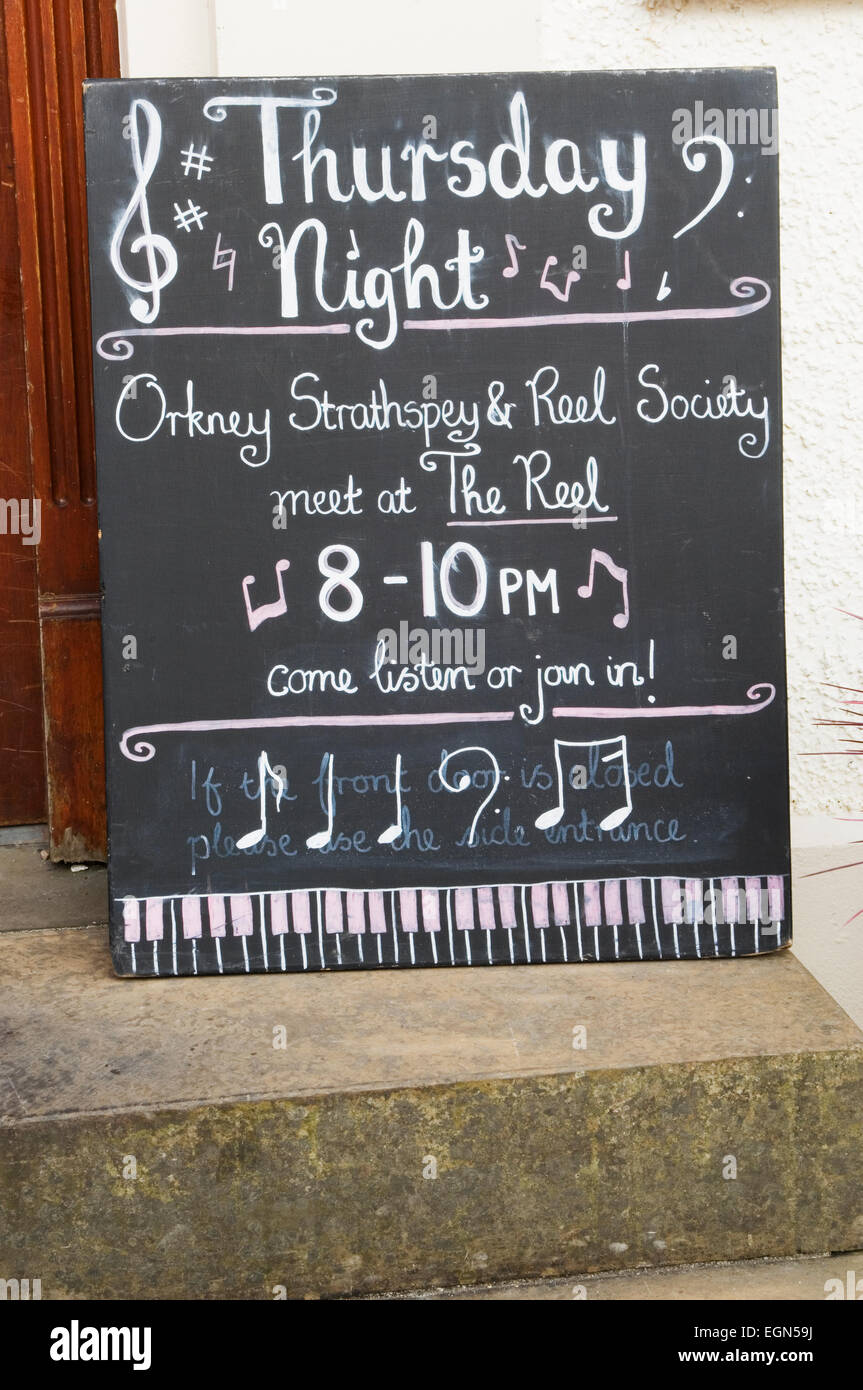 Thursday
Night
Orkney Strathspey & Reel Society
meet at The Reel
8 - 10 PM
come listen or join in!
If the front door is closed
please use the side entrance.
alamy
Image ID: EGN59J
www.alamy.com